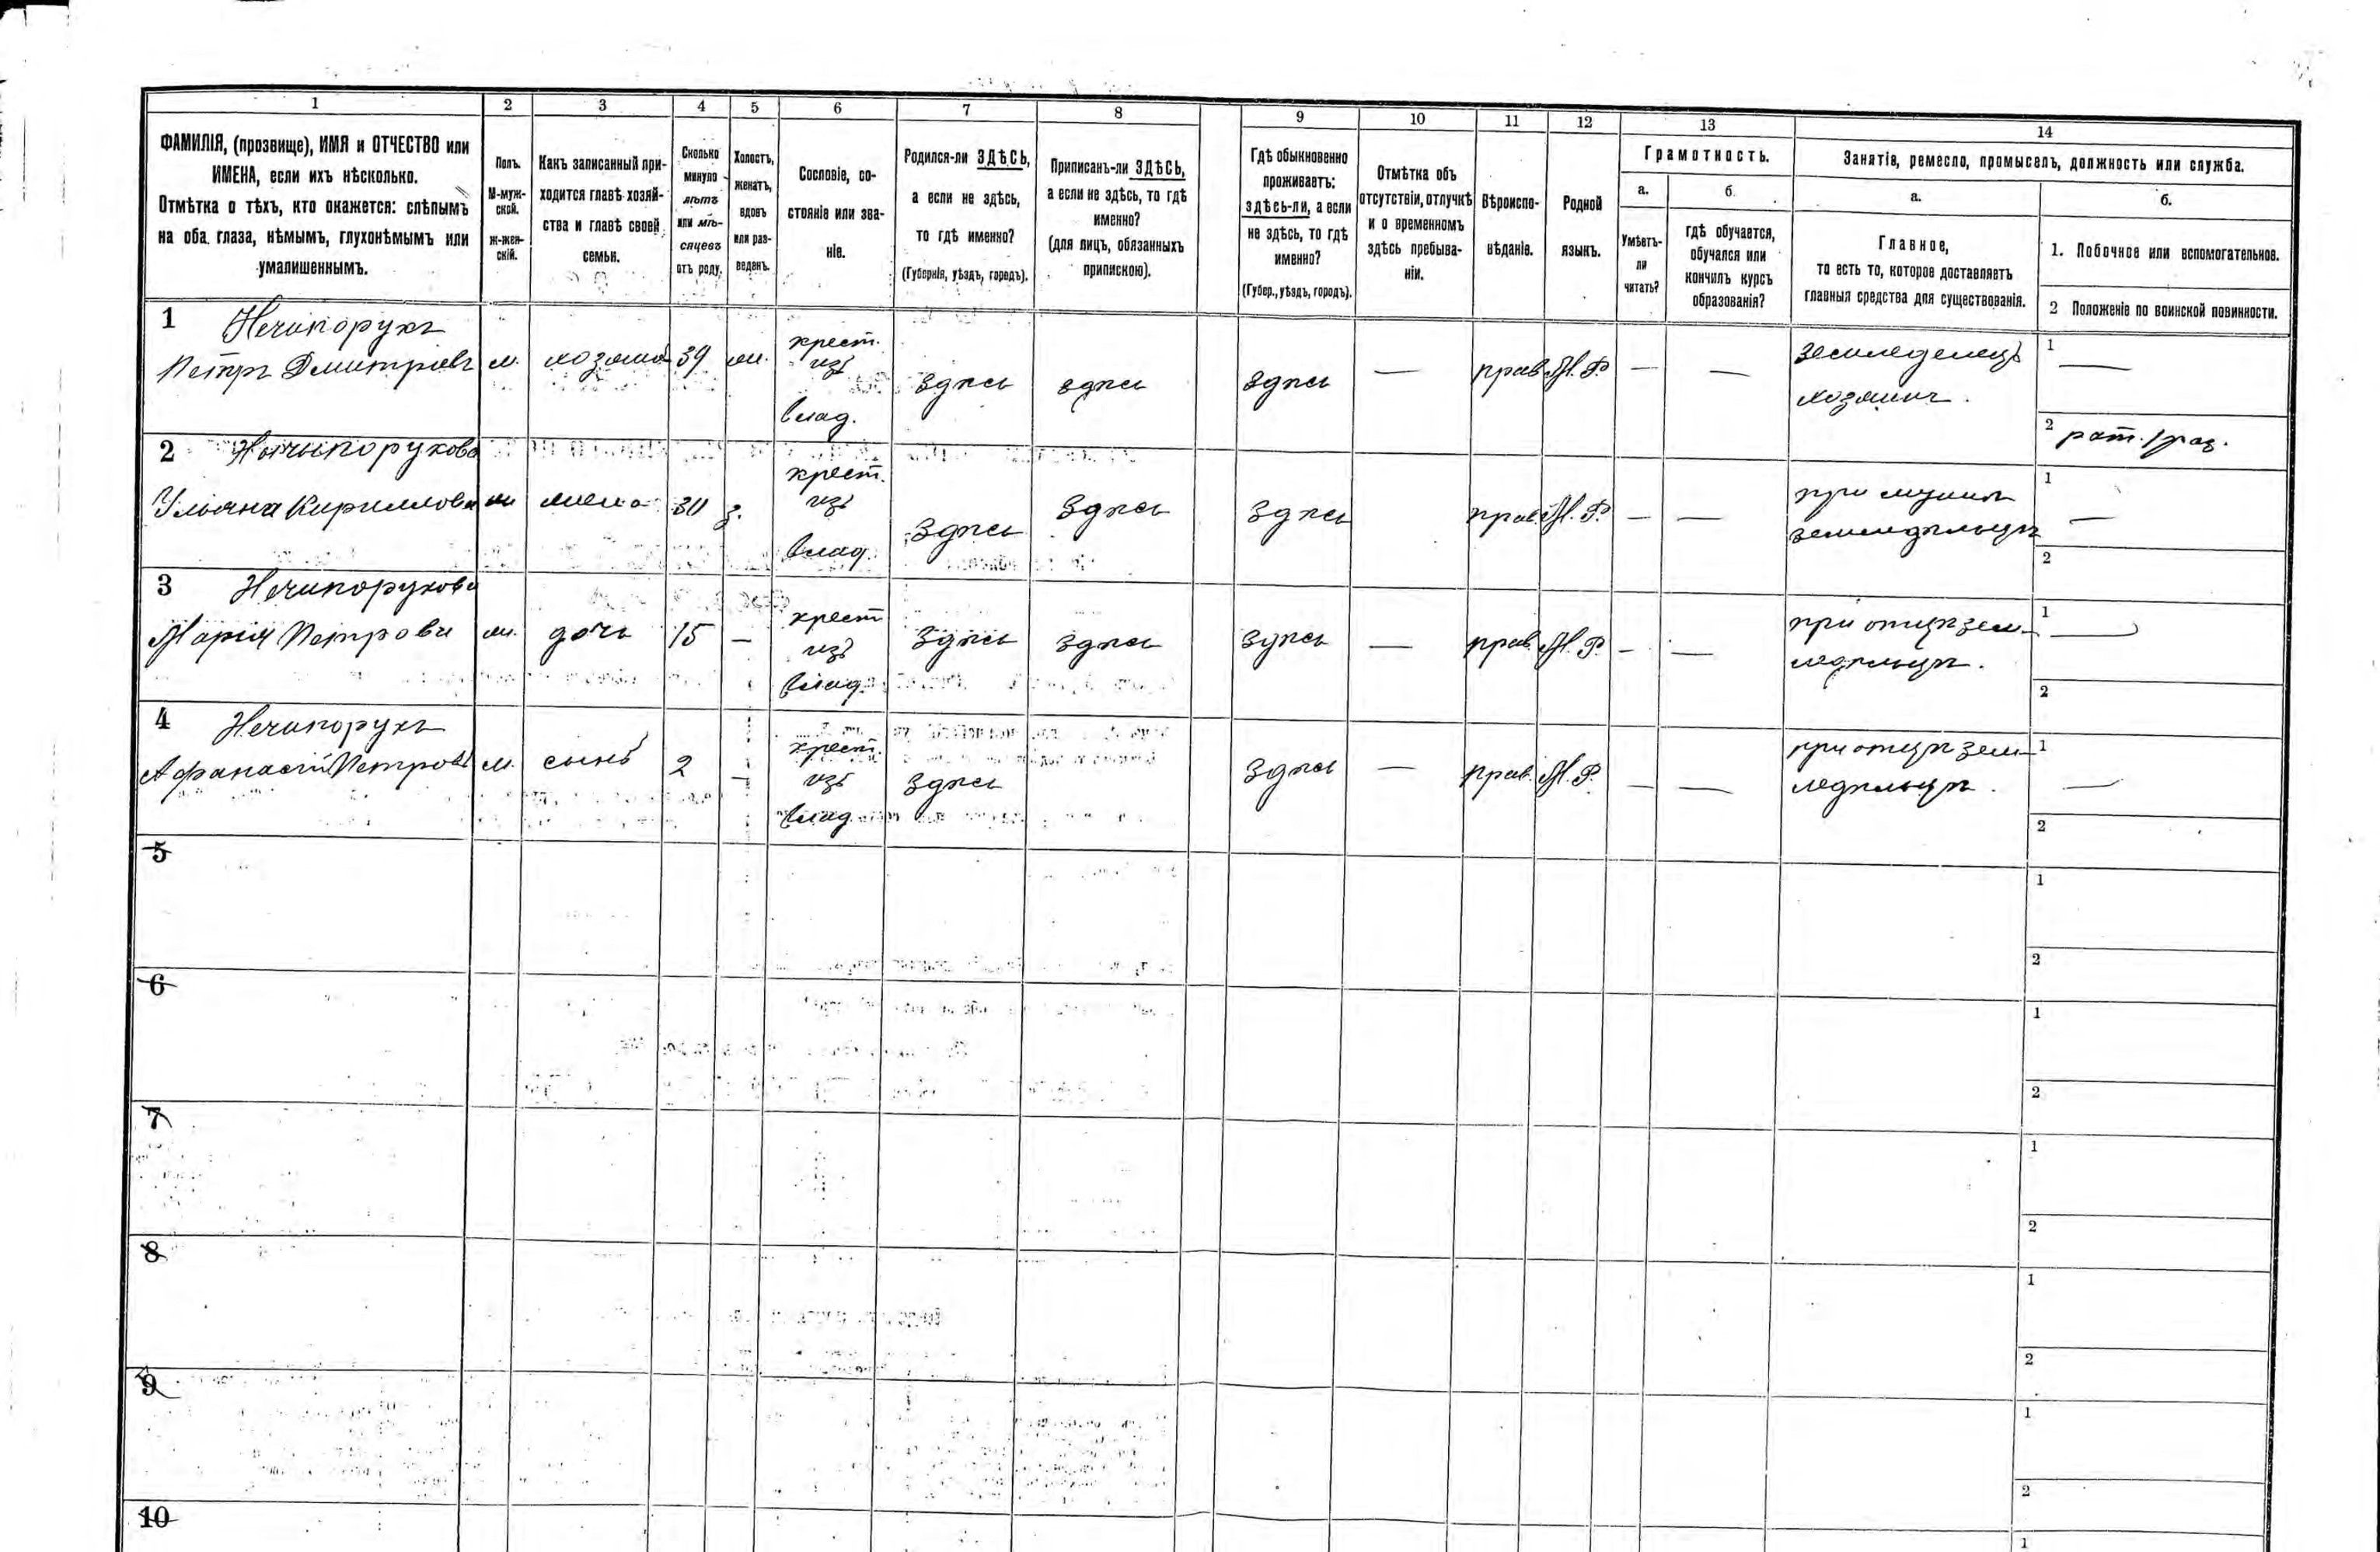 1 2 3 4 5 6 7 8 9 10 11 12 13 14
ФАМИЛІЯ, (прозвище), ИМЯ и ОТЧЕСТВО или
ИМЕНА, если ихъ нѣсколько.
Отмѣтка о тѣхъ, кто окажется: слѣпымъ
на оба глаза, нѣмымъ, глухонѣмымъ или
умалишеннымъ.
Полъ.
М-муж-
ской.
ж-жен-
скій.
Какъ записанный при-
ходится главѣ хозяй-
ства и главѣ своей
семьи.
Сколько
минуло
лѣтъ
или мѣ-
сяцевъ
отъ роду.
Холостъ,
женатъ,
вдовъ
или раз-
веденъ.
Сословіе, со-
стояніе или зва-
ніе.
Родился-ли ЗДѢСЬ,
а если не здѣсь,
то гдѣ именно?
(Губернія, уѣздъ, городъ).
Приписанъ-ли ЗДѢСЬ,
а если не здѣсь, то гдѣ
именно?
(для лицъ, обязанныхъ
припискою).
Гдѣ обыкновенно
проживаетъ:
здѣсь-ли, а если
не здѣсь, то гдѣ
именно?
(Губер., уѣздъ, городъ).
Отмѣтка объ
отсутствіи, отлучкѣ
и о временномъ
здѣсь пребыва-
ніи.
Вѣроиспо-
вѣданіе.
Родной
языкъ.
Грамотность.
а.
Умѣетъ-
ли
читать?
б.
гдѣ обучается,
обучался или
кончилъ курсъ
образованія?
Занятія, ремесло, промыселъ, должность или служба.
а.
Главное,
то есть то, которое доставляетъ
главныя средства для существованія.
б.
1. Побочное или вспомогательное.
2 Положеніе по воинской повинности.
1 Нечипорукъ
Петръ Дмитріевъ м. хозяинъ 39 ж.
крест.
изъ
влад.
здѣсь здѣсь здѣсь — прав. М. Р. — —
земледелецъ
хозяинъ.
1 —
2 рат. 1 раз.
2 Нычыпорукова
Ульяна Кириллова ж жена 30 з.
крест.
изъ
влад.
Здѣсь Здѣсь Здѣсь прав. М. Р. — —
при мужѣ
земледѣльцѣ
1 —
2
3 Нечипорукова
Марія Петрова ж. дочь 15 —
крест
изъ
влад.
Здѣсь Здѣсь Здѣсь — прав. М. Р. — —
при отцѣ зем-
ледѣльцѣ.
1 —
2
4 Нечипорукъ
Афанасій Петровъ м. сынъ 2 —
крест.
изъ
влад.
Здѣсь Здѣсь — прав. М. Р. — —
при отцѣ зем-
ледѣльцѣ.
1 —
2
5
1
2
6
1
2
7
1
2
8
1
2
9
1
2
10
1